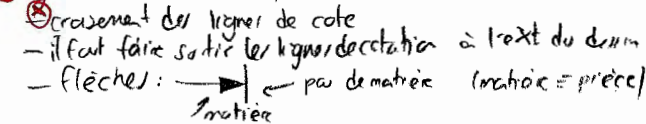 ⊗ crasement des lignes de cote
- il faut faire sortir les lignes de cotation à l'ext du dessin
- flèches : ← pas de matière (matière = pièce)
matière